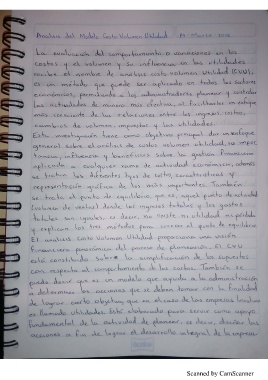 Analisis del Modelo Costo Volumen Utilidad
La evaluación del comportamiento o variaciones en los
costos y el volumen y su influencia en las utilidades
recibe el nombre de análisis costo Volumen Utilidad (CVU),
es un método que puede ser aplicado en todos los sectores
económicos, permitiendo a los administradores planear y controlar
las actividades de manera más efectiva, al facilitarles un enfoque
más de las relaciones entre los ingresos, costos,
volumen, impuestos y las utilidades.
Esta investigación tiene como objetivo principal dar un enfoque
general sobre el análisis de costos volumen utilidad, su impor
tancia, influencia y beneficios sobre los gastos. Financieros
aplicando a cualquier rama de actividad económica, además
se tratan los diferentes tipos de costos, características y
representación gráfica de los más importantes. También
se trata el punto de equilibrio que es aquel punto de actividad
(volumen de ventas) donde los ingresos totales y los gastos
totales son iguales, es decir, no existe ni utilidad ni pérdida
y explican los tres métodos para conocer el punto de equilibrio
El analisis Costo Volumen Utilidad proporciona una visión
financiera panorámica del proceso de planeación. El CVU
está constituido sobre la simplificación de los supuestos
con respecto al comportamiento de los costos. También se
puede decir que es un modelo que ayuda a la administración
a determinar las acciones que se deben tomar con la finalidad
de lograr cierto objetivo que en el caso de las empresas lucrativas
es llamado utilidades. Está elaborado para servir como apoyo
fundamental de la actividad de planear, es decir, diseñar las
acciones a fin de lograr el desarrollo integral de la empresa
Scanned by CamScanner